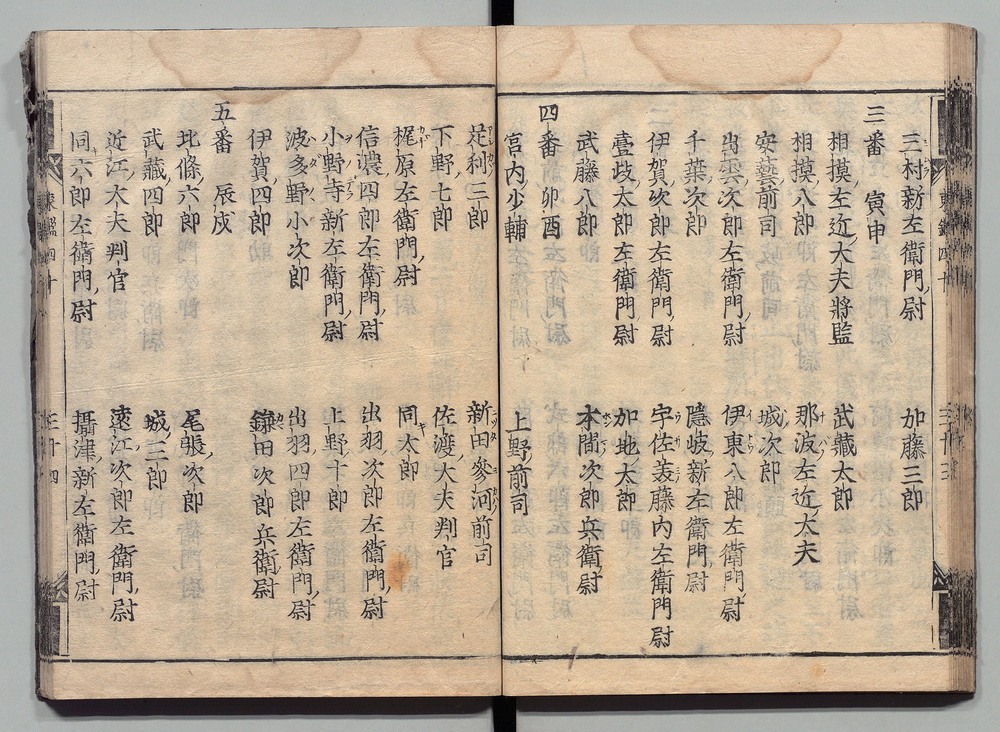 三村新左衛門尉 加藤三郎
三番 寅申
相摸左近大夫將監 武藏太郎
相摸八郎 那波左近大夫
安藝前司 城次郎
出雲次郎左衛門尉 伊東八郎左衛門尉
千葉次郎 隱岐新左衛門尉
伊賀次郎左衛門尉 宇佐美藤内左衛門尉
壹岐太郎左衛門尉 加地太郎
武藤八郎 本間次郎兵衛尉
四番 卯酉
宮内少輔 上野前司
足利三郎 新田參河前司
下野七郎 佐渡大夫判官
梶原左衛門尉 同太郎
信濃四郎左衛門尉 出羽次郎左衛門尉
小野寺新左衛門尉 上野十郎
波多野小次郎 出羽四郎左衛門尉
伊賀四郎 鎌田次郎兵衛尉
五番 辰戌
北條六郎 尾張次郎
武藏四郎 城二郎
近江大夫判官 遠江次郎左衛門尉
同六郎左衛門尉 攝津新左衛門尉